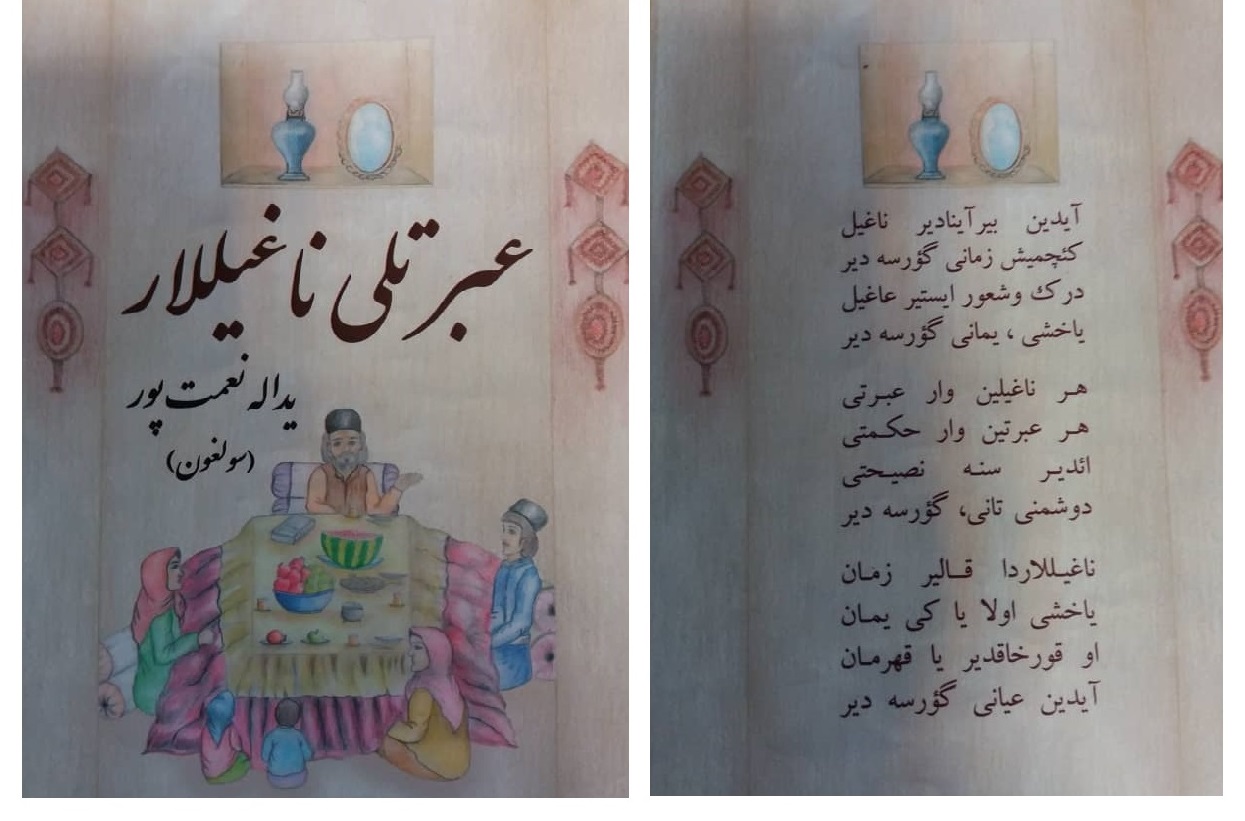 عبرتلی ناغیللار
یداله نعمت‌پور
(سولغون)
آیدین بیر آینادیر ناغیل
کئچمیش زمانی گؤرسه دیر
درک وشعور ایستیر عاغیل
یاخشی ، یمانی گؤرسه دیر
هر ناغیلین وار عبرتی
هر عبرتین وار حکمتی
ائدیر سنه نصیحتی
دوشمنی تانی، گؤرسه دیر
ناغیللاردا قالیر زمان
یاخشی اولا یا کی یمان
او قورخاقدیر یا قهرمان
آیدین عیانی گؤرسه دیر